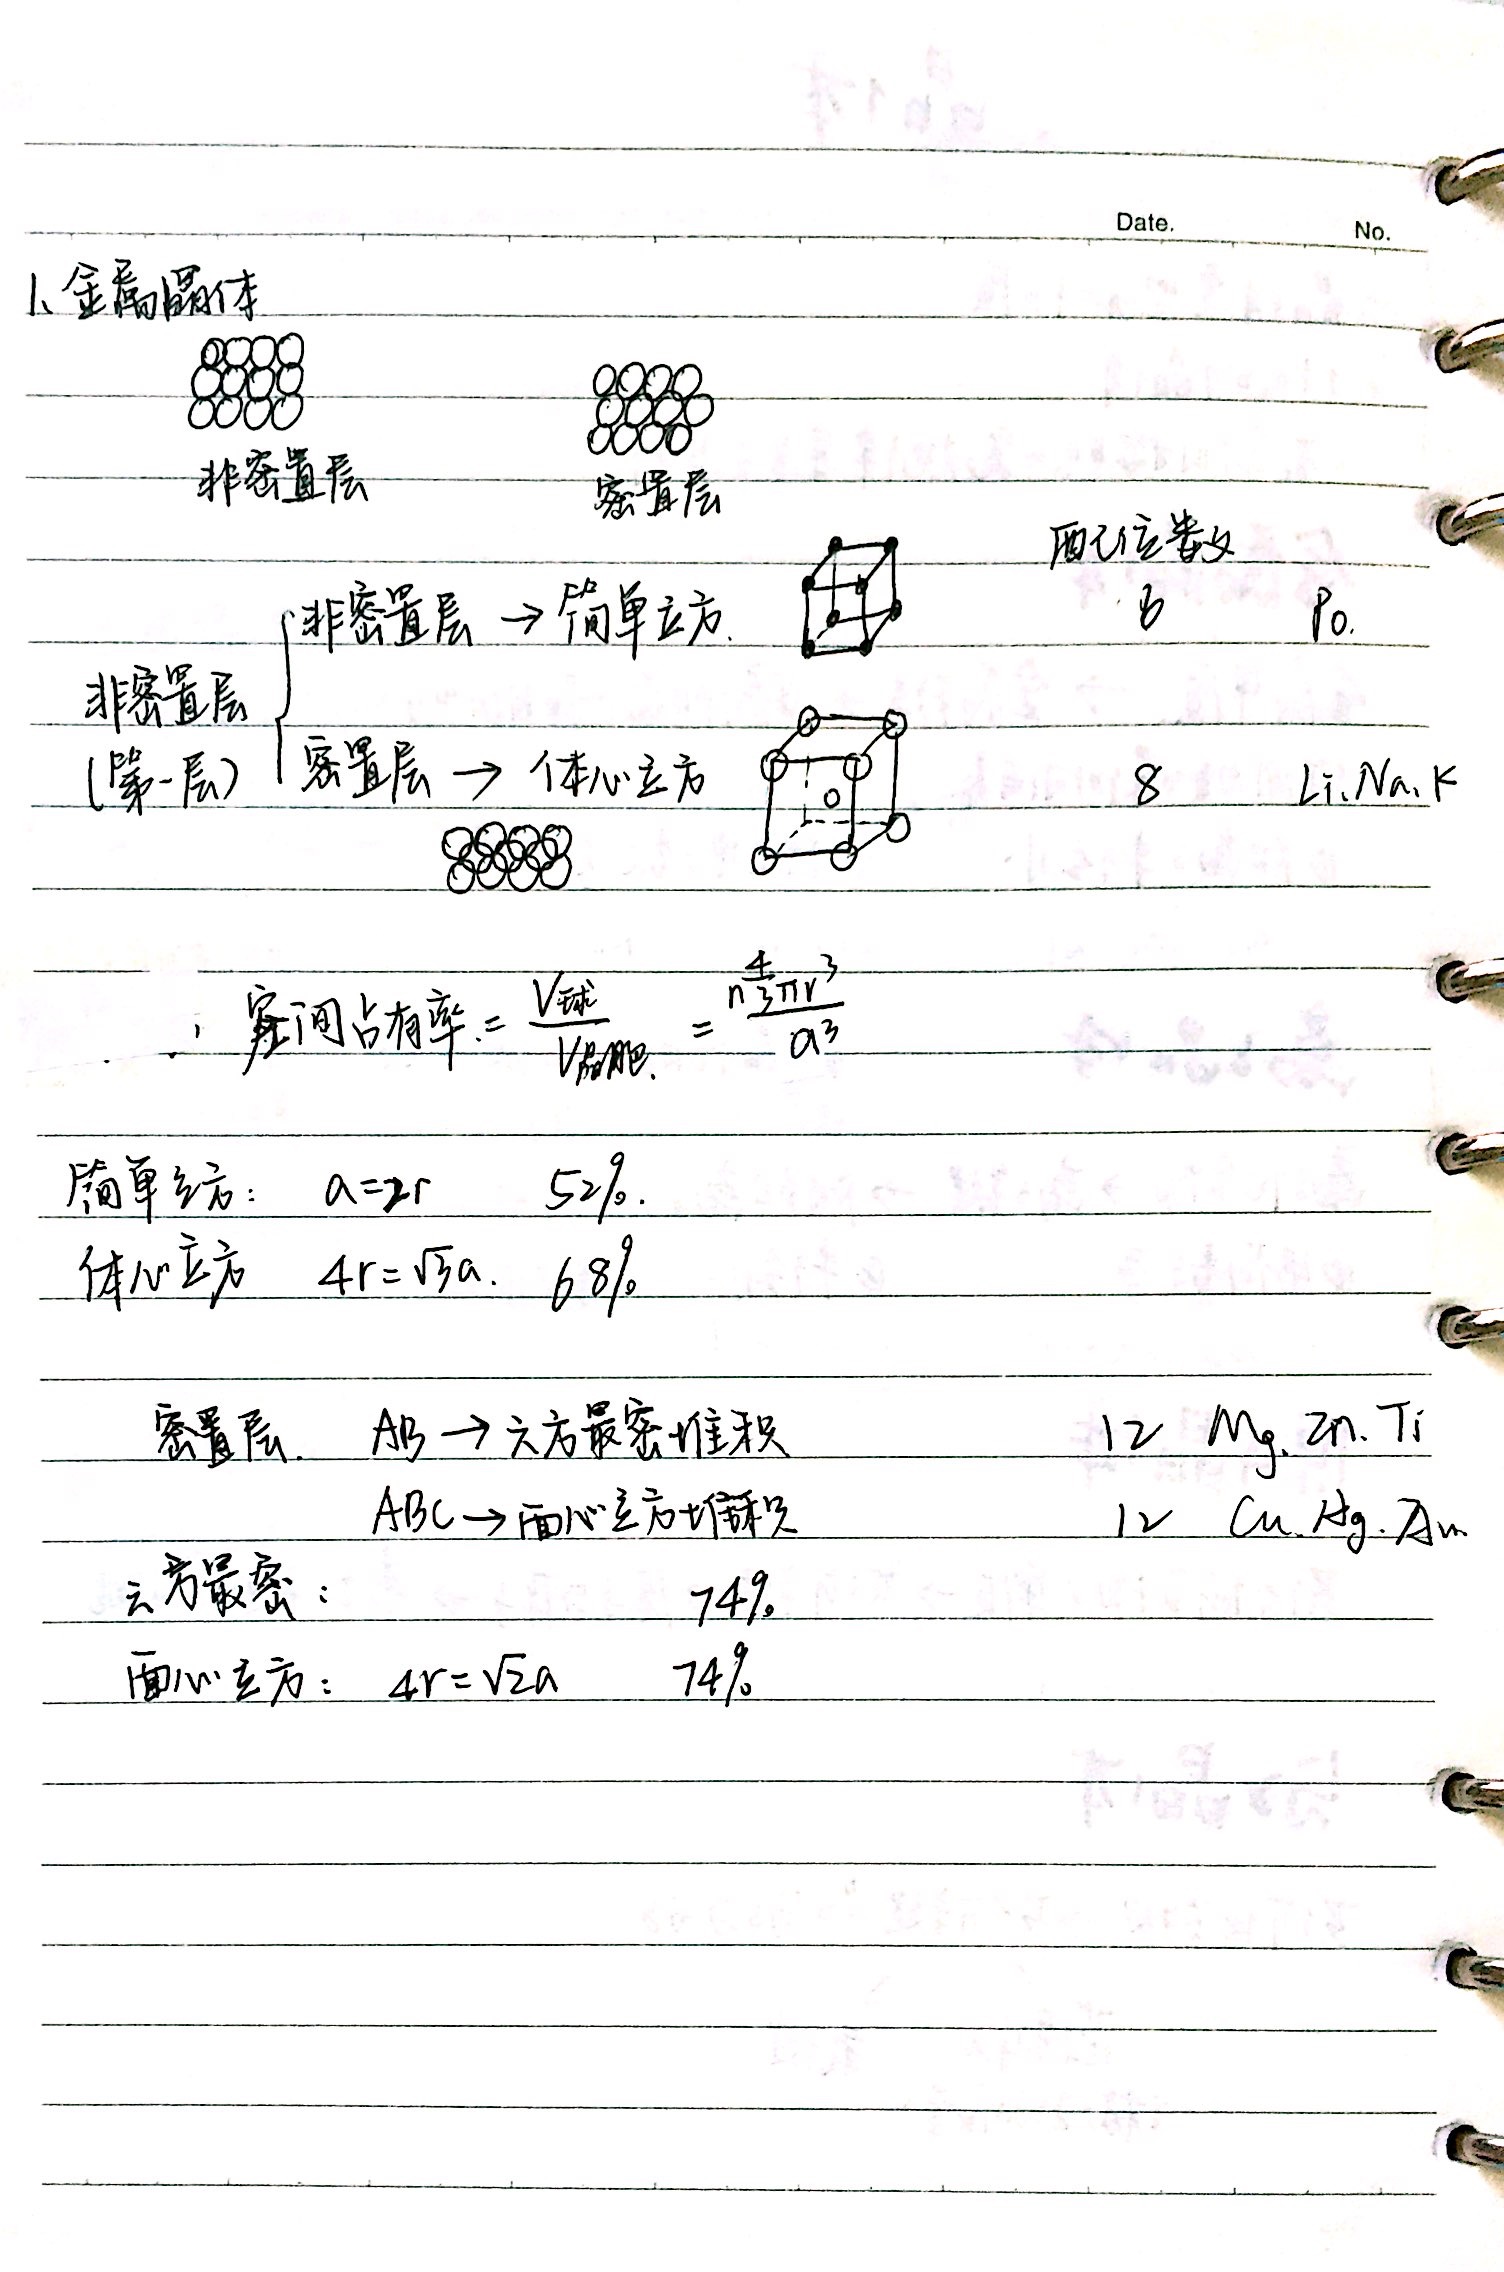 Date. No.
1、金属晶体
非密置层 密置层
配位数
非密置层 → 简单立方. 6 Po.
非密置层
(第一层) 密置层 → 体心立方 8 Li.Na.K
∴ 空间占有率 = V球/V晶胞. = n 4/3 πr³/a³
简单立方: a=2r 52%.
体心立方 4r=√3a. 68%
密置层. AB → 六方最密堆积 12 Mg.Zn.Ti
ABC → 面心立方堆积 12 Cu.Ag.Au
六方最密: 74%
面心立方: 4r=√2a 74%